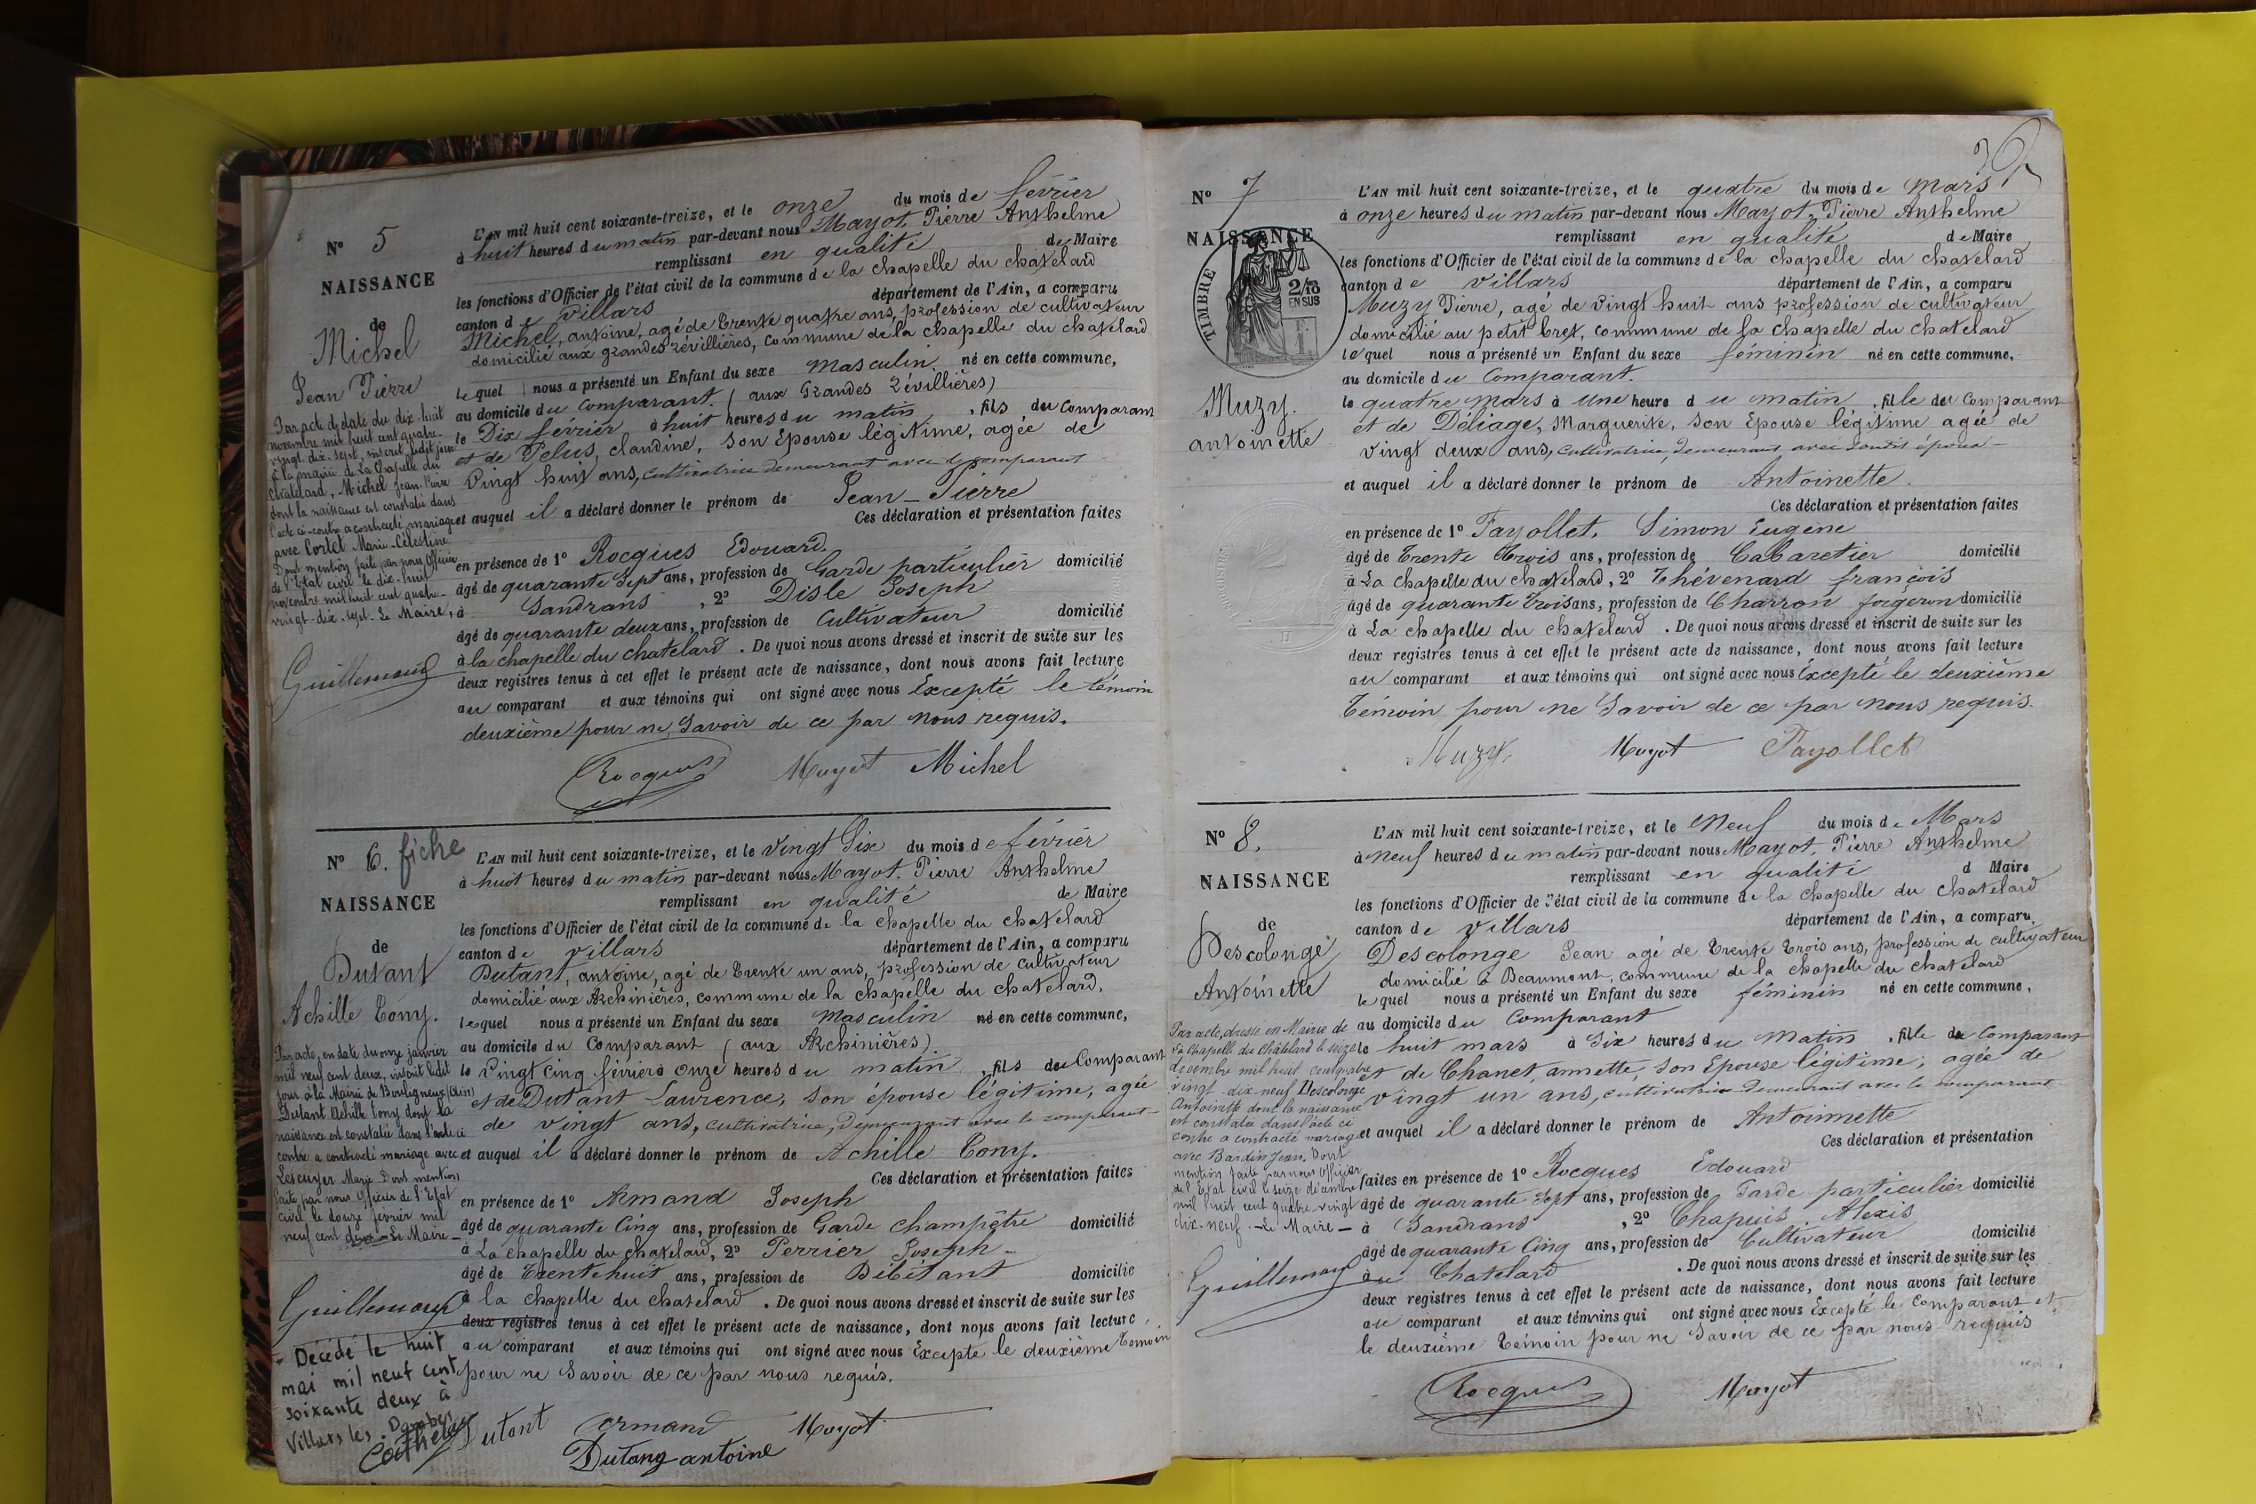 N° 5
NAISSANCE
de
Michel
Jean Pierre
Par acte de date du dix-huit
novembre mil huit cent quatre-
vingt-dix-sept, inscrit ledit jour
à la mairie de La Chapelle du
Châtelard, Michel Jean Pierre
dont la naissance est constatée dans
l'acte ci-contre a contracté mariage
avec Cortet Marie-Célestine
Dont mention faite par nous Officier
de l'Etat civil le dix-huit
novembre mil huit cent quatre-
vingt-dix-sept. Le Maire,
Guillemaud
L'AN mil huit cent soixante-treize, et le onze du mois de février
à huit heures du matin par-devant nous Mayot, Pierre Anthelme
remplissant en qualité de Maire
les fonctions d'Officier de l'état civil de la commune de la chapelle du chatelard
canton de villars département de l'Ain, a comparu
Michel, antoine, agé de trente quatre ans, profession de cultivateur
domicilié aux grandes révillières, commune de la chapelle du chatelard
lequel nous a présenté un Enfant du sexe masculin né en cette commune,
au domicile du comparant. (aux Grandes Révillières)
le Dix fevrier à huit heures du matin, fils du comparant
et de Pelus, claudine, son Epouse légitime, agée de
vingt huit ans, cultivatrice demeurant avec le comparant
et auquel il a déclaré donner le prénom de Jean-Pierre
Ces déclaration et présentation faites
en présence de 1° Rocques Edouard
âgé de quarante sept ans, profession de Garde particulier domicilié
à Sandrans, 2° Disle Joseph
âgé de quarante deux ans, profession de Cultivateur domicilié
à la chapelle du chatelard. De quoi nous avons dressé et inscrit de suite sur les
deux registres tenus à cet effet le présent acte de naissance, dont nous avons fait lecture
au comparant et aux témoins qui ont signé avec nous Excepté le témoin
deuxième pour ne Savoir de ce par nous requis.
Rocques Mayot Michel
N° 6. fiche
NAISSANCE
de
Dutant
Achille Tony.
Par acte, en date du onze janvier
mil neuf cent deux, inscrit ledit
jour à la Mairie de Bouligneux (Ain)
Dutant Achille Tony dont la
naissance est constatée dans l'acte ci
contre a contracté mariage avec
Lescuyer Marie Dont mention
faite par nous Officier de l'Etat
civil le douze février mil
neuf cent deux - Le Maire -
Guillemaud
Décédé le huit
mai mil neuf cent
soixante deux à
Villars les Dombes
L'AN mil huit cent soixante-treize, et le vingt Six du mois de février
à huit heures du matin par-devant nous Mayot, Pierre Anthelme
remplissant en qualité de Maire
les fonctions d'Officier de l'état civil de la commune de la chapelle du chatelard
canton de villars département de l'Ain, a comparu
Dutant, antoine, agé de trente un ans, profession de cultivateur
domicilié aux Archinières, commune de la chapelle du chatelard,
lequel nous a présenté un Enfant du sexe masculin né en cette commune,
au domicile du Comparant (aux Archinières)
le vingt cinq février à onze heures du matin, fils du Comparant
et de Dutant Laurence, son épouse légitime, agée
de vingt ans, cultivatrice, demeurant avec le comparant
et auquel il a déclaré donner le prénom de Achille Tony.
Ces déclaration et présentation faites
en présence de 1° Armand Joseph
âgé de quarante Cinq ans, profession de Garde champêtre domicilié
à La chapelle du chatelard, 2° Perrier Joseph
âgé de trente huit ans, profession de Débitant domicilié
à la chapelle du chatelard. De quoi nous avons dressé et inscrit de suite sur les
deux registres tenus à cet effet le présent acte de naissance, dont nous avons fait lecture,
au comparant et aux témoins qui ont signé avec nous Excepté le deuxième témoin
pour ne Savoir de ce par nous requis.
Dutant armand Mayot
Dutang antoine
36
N° 7
NAISSANCE
TIMBRE
2/10
EN SUS
Muzy.
antoinette
L'AN mil huit cent soixante-treize, et le quatre du mois de Mars
à onze heures du matin par-devant nous Mayot, Pierre Anthelme
remplissant en qualité de Maire
les fonctions d'Officier de l'état civil de la commune de la chapelle du chatelard
canton de villars département de l'Ain, a comparu
Muzy Pierre, agé de vingt huit ans profession de cultivateur
domicilié au petit Cret, commune de la chapelle du chatelard
lequel nous a présenté un Enfant du sexe féminin né en cette commune,
au domicile du Comparant.
le quatre Mars à Une heure du matin, fille du Comparant
et de Déliage, Marguerite, son Epouse légitime agée de
vingt deux ans, cultivatrice, demeurant avec son dit époux -
et auquel il a déclaré donner le prénom de Antoinette.
Ces déclaration et présentation faites
en présence de 1° Fayollet, Simon Eugène
âgé de trente trois ans, profession de Cabaretier domicilié
à La chapelle du chatelard, 2° Thévenard françois
âgé de quarante trois ans, profession de Charron forgeron domicilié
à La chapelle du chatelard. De quoi nous avons dressé et inscrit de suite sur les
deux registres tenus à cet effet le présent acte de naissance, dont nous avons fait lecture
au comparant et aux témoins qui ont signé avec nous Excepté le deuxième
témoin pour ne Savoir de ce par nous requis.
Muzy. Mayot Fayollet
N° 8.
NAISSANCE
de
Descolonge
Antoinette
Par acte, dressé en Mairie de
La Chapelle du Châtelard le seize
décembre mil huit cent quatre
vingt-dix-neuf Descolonge
Antoinette dont la naissance
est constatée dans l'acte ci
contre a contracté mariage
avec Bardin Jean. Dont
mention faite par nous Officier
de l'Etat civil le seize décembre
mil huit cent quatre-vingt
dix-neuf - Le Maire -
Guillemaud
L'AN mil huit cent soixante-treize, et le Neuf du mois de Mars
à Neuf heures du matin par-devant nous Mayot, Pierre Anthelme
remplissant en qualité d Maire
les fonctions d'Officier de l'état civil de la commune de la chapelle du chatelard
canton de villars département de l'Ain, a comparu,
Descolonge Jean agé de trente trois ans, profession de cultivateur
domicilié à Beaumont, commune de la chapelle du chatelard
lequel nous a présenté un Enfant du sexe féminin né en cette commune,
au domicile du Comparant
le huit mars à Six heures du Matin, fille du Comparant
et de Chanet, annette, son Epouse légitime, agée de
vingt un ans, cultivatrice demeurant avec le comparant
et auquel il a déclaré donner le prénom de Antoinnette
Ces déclaration et présentation
faites en présence de 1° Rocques Edouard
âgé de quarante sept ans, profession de Garde particulier domicilié
à Sandrans, 2° Chapuis Alexis
âgé de quarante Cinq ans, profession de Cultivateur domicilié
au Chatelard. De quoi nous avons dressé et inscrit de suite sur les
deux registres tenus à cet effet le présent acte de naissance, dont nous avons fait lecture
au comparant et aux témoins qui ont signé avec nous Excepté le Comparant et
le deuxième témoin pour ne Savoir de ce par nous requis
Rocques Mayot